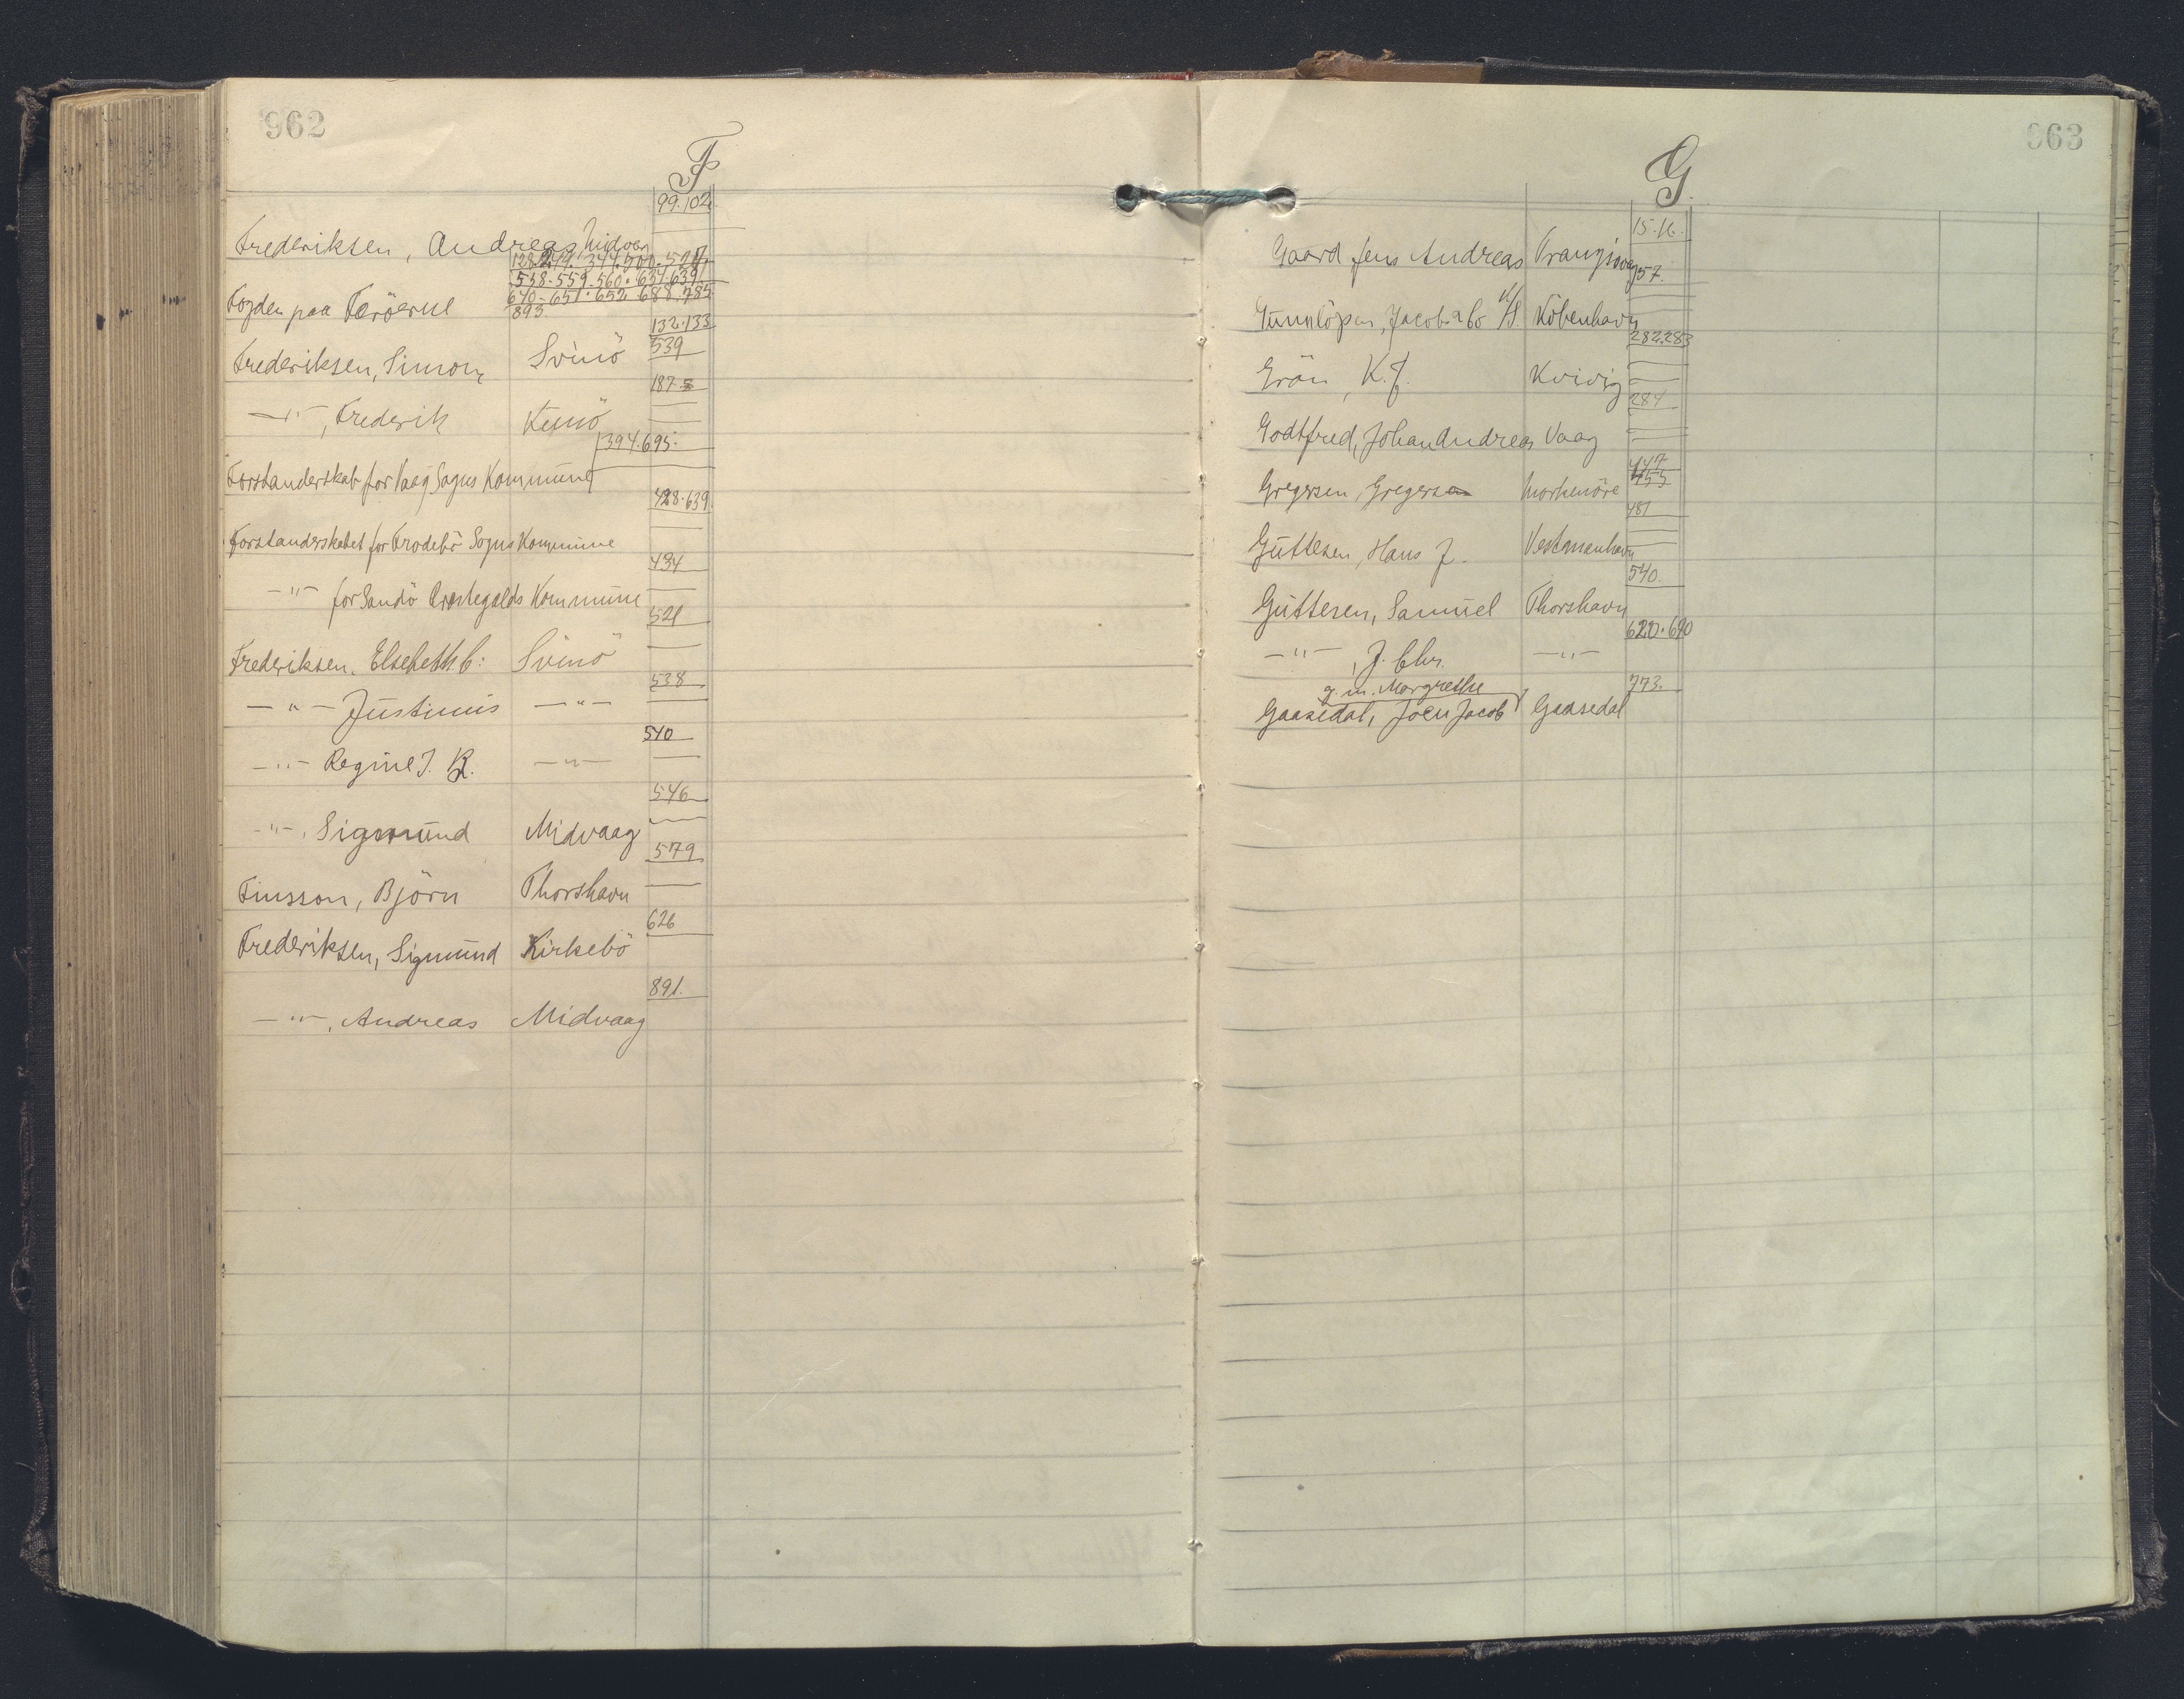 962
F
99.102.
Frederiksen, Andreas Midvaag
128. 344. 500.
558-559-560. 634.639
Fogden paa Færöerne 640-651.652 688.785.
893.
132.133
539
Frederiksen, Simon Svinö
187.
—"—, Frederik Kunö
394.695.
Forstanderskab for Vaag Sogns Kommune
428.639.
Forstanderskabet for Frodebö Sogns Kommune
434
—"— for Sandö Præstegalds Kommune
521
Frederiksen, Elsebeth C: Svinö
538
—"— Justinus —"—
540
—"— Regine J. K. —"—
546
—"—, Sigmund Midvaag
579
Finsson, Björn Thorshavn
626
Frederiksen, Sigmund Kirkebö
891.
—"—, Andreas Midvaag
963
G.
15.16.
Gaard Jens Andreas Trangisvaag
57.
Gunnlöpur, Jacobsabo A/S. Köbenhavn
282.283
Grön, K. J. Kvivig
284
Godtfred, Johan Andreas Vaag
447
455
Gregersen, Gregers Morkenöre
481
Guttesen, Hans J. Vestmanhavn
540.
Guttesen, Samuel Thorshavn
620.690
—"—, J. Chr. —"—
773.
g. m. Margrethe
Gaasedal, Joen Jacob Gaasedal